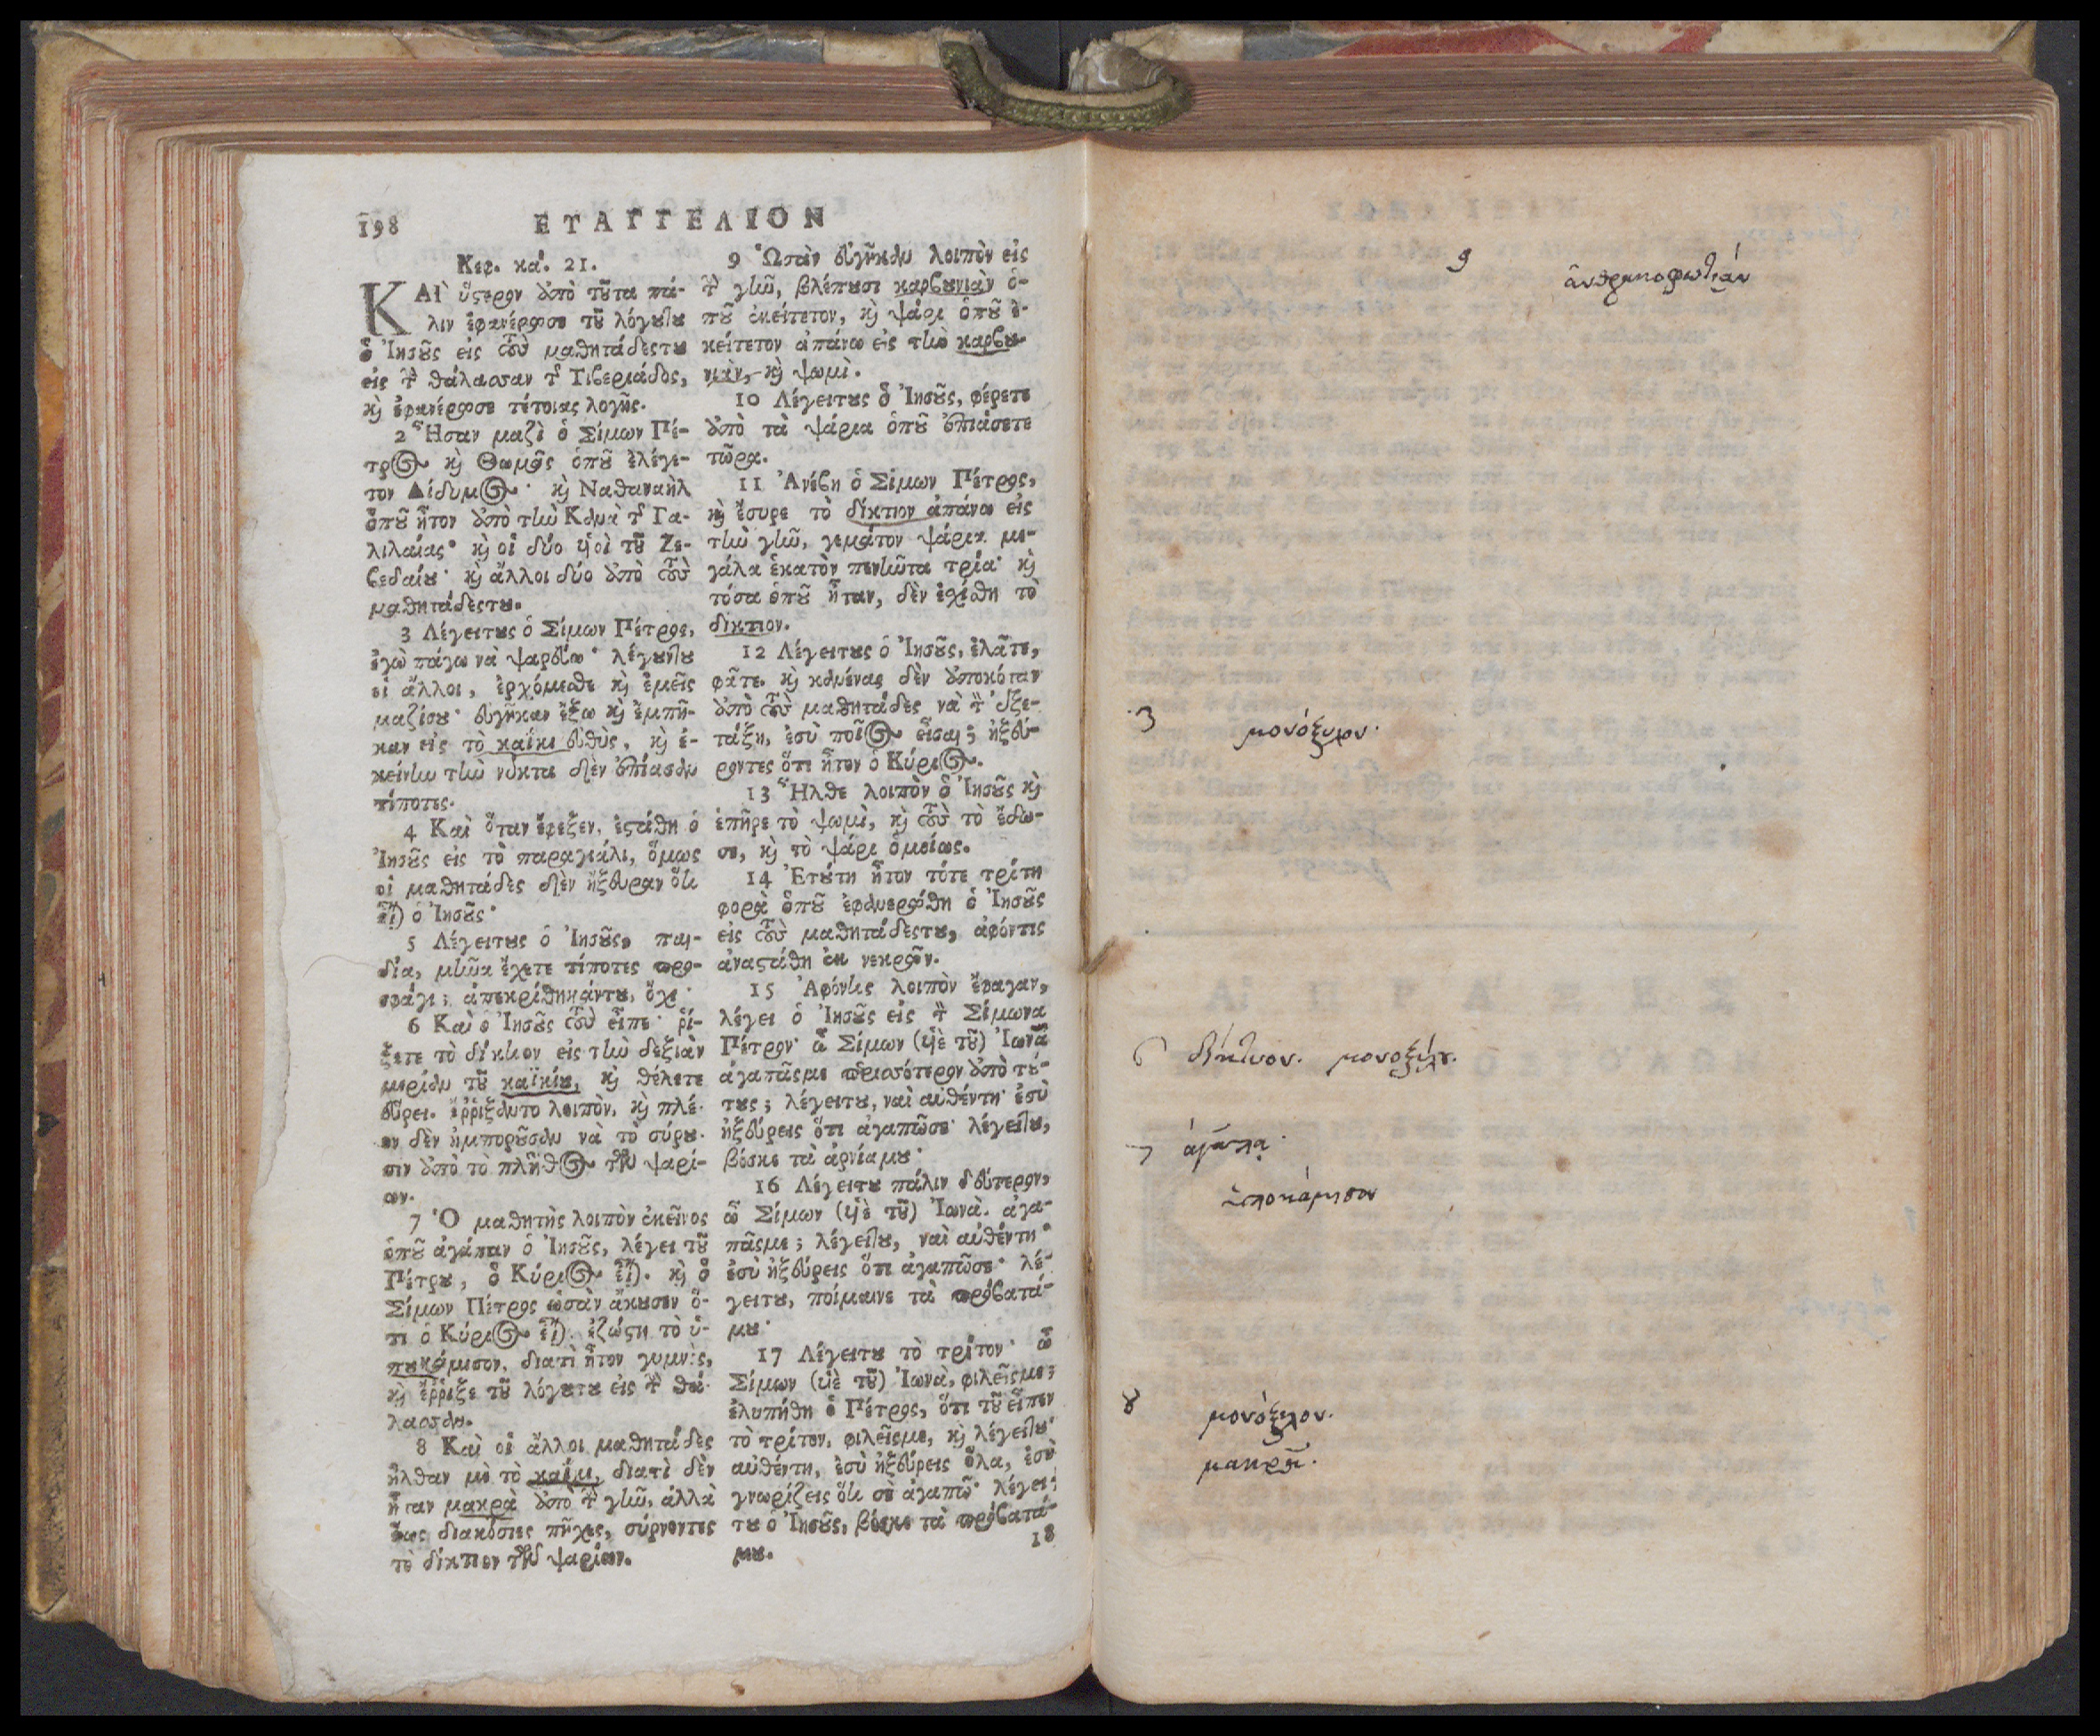 198 ΕΥΑΓΓΕΛΙΟΝ
Κεφ. κά. 21.
ΚΑὶ ὕςερον ἀπὸ τȣ͂τα πά-
λιν ἐφανέρωσε τȣ͂ λόγȣτȣ
ὁ Ἰησȣ͂ς εἰς τοὺς μαθητάδεςτȣ
εἰς τὴν θάλασσαν τῆς Τιβεριάδος,
κ̀ ἐφανέρωσε τέτοιας λογῆς.
2 Ἦσαν μαζὶ ὁ Σίμων Πέ-
τρος κ̀ Θωμᾶς ὁπȣ͂ ἐλέγε-
τον Δίδυμος· κ̀ Ναθαναὴλ
ὁπȣ͂ ἦτον ἀπὸ τὴν Κανὰ τῆς Γα-
λιλαίας· κ̀ οἱ δύο ὑιοὶ τȣ͂ Ζε-
βεδαίȣ· κ̀ ἄλλοι δύο ἀπὸ τοὺς
μαθητάδεςτȣ.
3 Λέγειτȣς ὁ Σίμων Πέτρος,
ἐγὼ πάγω νὰ ψαρεύω· λέγȣντȣ
οἱ ἄλλοι, ἐρχόμεσθε κ̀ ἐμεῖς
μαζίσȣ· εὐγῆκαν ἔξω κ̀ ἐμπῆ-
καν εἰς τὸ καΐκι εὐθὺς, κ̀ ἐ-
κείνην τὴν νύκτα δὲν ἐπίασαν
τίποτες.
4 Καὶ ὅταν ἔφεξεν, ἐςάθη ὁ
Ἰησȣ͂ς εἰς τὸ παραγιάλι, ὅμως
οἱ μαθητάδες δὲν ἤξευραν ὅτι
εἶναι ὁ Ἰησȣ͂ς·
5 Λέγειτȣς ὁ Ἰησȣ͂ς, παι-
δία, μήνα ἔχετε τίποτες προ-
σφάγι; ἀπεκρίθηκάντȣ, ὄχι·
6 Καὶ ὁ Ἰησȣ͂ς τοὺς εἶπε· ῥί-
ξετε τὸ δίκτιον εἰς τὴν δεξιὰν
μερίαν τȣ͂ καϊκίȣ, κ̀ θέλετε
εὕρει. ἔῤῥιξάντο λοιπὸν, κ̀ πλέ-
ον δὲν ἠμπορȣ͂σαν νὰ τὸ σύρȣ-
σιν ἀπὸ τὸ πλῆθος τῶν ψαρί-
ων.
7 Ὁ μαθητὴς λοιπὸν ἐκεῖνος
ὁπȣ͂ ἀγάπαν ὁ Ἰησȣ͂ς, λέγει τȣ͂
Πέτρȣ, ὁ Κύριος εἶναι. κ̀ ὁ
Σίμων Πέτρος ὡσὰν ἄκȣσεν ὅ-
τι ὁ Κύριος εἶναι. ἐζώςη τὸ ὑ-
πȣκάμισον, διατὶ ἦτον γυμνὸς,
κ̀ ἔῤῥιξε τȣ͂ λόγȣτȣ εἰς τὴν θά-
λασσαν.
8 Καὶ οἱ ἄλλοι μαθητάδες
ἦλθαν μὲ τὸ καΐκι, διατὶ δὲν
ἦταν μακρὰ ἀπὸ τὴν γῆν, ἀλλὰ
ἕως διακόσιες πῆχες, σύρνοντες
τὸ δίκτιον τῶν ψαρίων.
9 Ὡσὰν εὐγῆκαν λοιπὸν εἰς
τὴν γῆν, βλέπȣσι καρβȣνιὰν ὁ-
πȣ͂ ἐκείτετον, κ̀ ψάρι ὁπȣ͂ ἐ-
κείτετον ἀπάνω εἰς τὴν καρβȣ-
νιὰν, κ̀ ψωμὶ.
10 Λέγειτȣς ὁ Ἰησȣ͂ς, φέρετε
ἀπὸ τὰ ψάρια ὁπȣ͂ ἐπιάσετε
τῶρα.
11 Ἀνέβη ὁ Σίμων Πέτρος,
κ̀ ἔσυρε τὸ δίκτιον ἀπάνω εἰς
τὴν γῆν, γεμάτον ψάρια με-
γάλα ἑκατὸν πενῆντα τρία· κ̀
τόσα ὁπȣ͂ ἦταν, δὲν ἐχίσθη τὸ
δίκτιον.
12 Λέγειτȣς ὁ Ἰησȣ͂ς, ἐλᾶτε,
φᾶτε. κ̀ κανένας δὲν ἀποκόταν
ἀπὸ τοὺς μαθητάδες νὰ τὸν ἐξε-
τάξῃ, ἐσὺ ποῖος εἶσαι; ἠξεύ-
ροντες ὅτι ἦτον ὁ Κύριος.
13 Ἦλθε λοιπὸν ὁ Ἰησȣ͂ς κ̀
ἐπῆρε τὸ ψωμὶ, κ̀ τοὺς τὸ ἔδω-
σε, κ̀ τὸ ψάρι ὁμοίως.
14 Ἐτȣ́τη ἦτον τότε τρίτη
φορὰ ὁπȣ͂ ἐφανερώθη ὁ Ἰησȣ͂ς
εἰς τοὺς μαθητάδεςτȣ, ἀφόντις
ἀναςάθη ἐκ νεκρῶν.
15 Ἀφόντις λοιπὸν ἔφαγαν,
λέγει ὁ Ἰησȣ͂ς εἰς τὸν Σίμωνα
Πέτρον· ὦ Σίμων (ὑιὲ τȣ͂) Ἰωνᾶ
ἀγαπᾶςμε περισσότερον ἀπὸ τȣ́-
τȣς; λέγειτȣ, ναὶ αὐθέντη· ἐσὺ
ἠξεύρεις ὅτι ἀγαπῶσε· λέγειτȣ,
βόσκε τὰ ἀρνίαμȣ·
16 Λέγειτȣ πάλιν δεύτερον,
ὦ Σίμων (ὑιὲ τȣ͂) Ἰωνὰ. ἀγα-
πᾶςμε; λέγειτȣ, ναὶ αὐθέντη·
ἐσὺ ἠξεύρεις ὅτι ἀγαπῶσε· λέ-
γειτȣ, ποίμαινε τὰ πρόβατά-
μȣ·
17 Λέγειτȣ τὸ τρίτον· ὦ
Σίμων (ὑιὲ τȣ͂) Ἰωνὰ, φιλεῖςμε;
ἐλυπήθη ὁ Πέτρος, ὅτι τȣ͂ εἶπεν
τὸ τρίτον, φιλεῖςμε, κ̀ λέγειτȣ·
αὐθέντη, ἐσὺ ἠξεύρεις ὅλα, ἐσὺ
γνωρίζεις ὅτι σὲ ἀγαπῶ· λέγει-
τȣ ὁ Ἰησȣ͂ς, βόσκε τὰ πρόβατά-
μȣ.
18
9 ἀνθρακοφωτιάν
3 μονόξυλον.
6 δίκτυον. μονοξύλȣ.
7 ἀγάπα.
ὑποκάμισον
8 μονόξυλον.